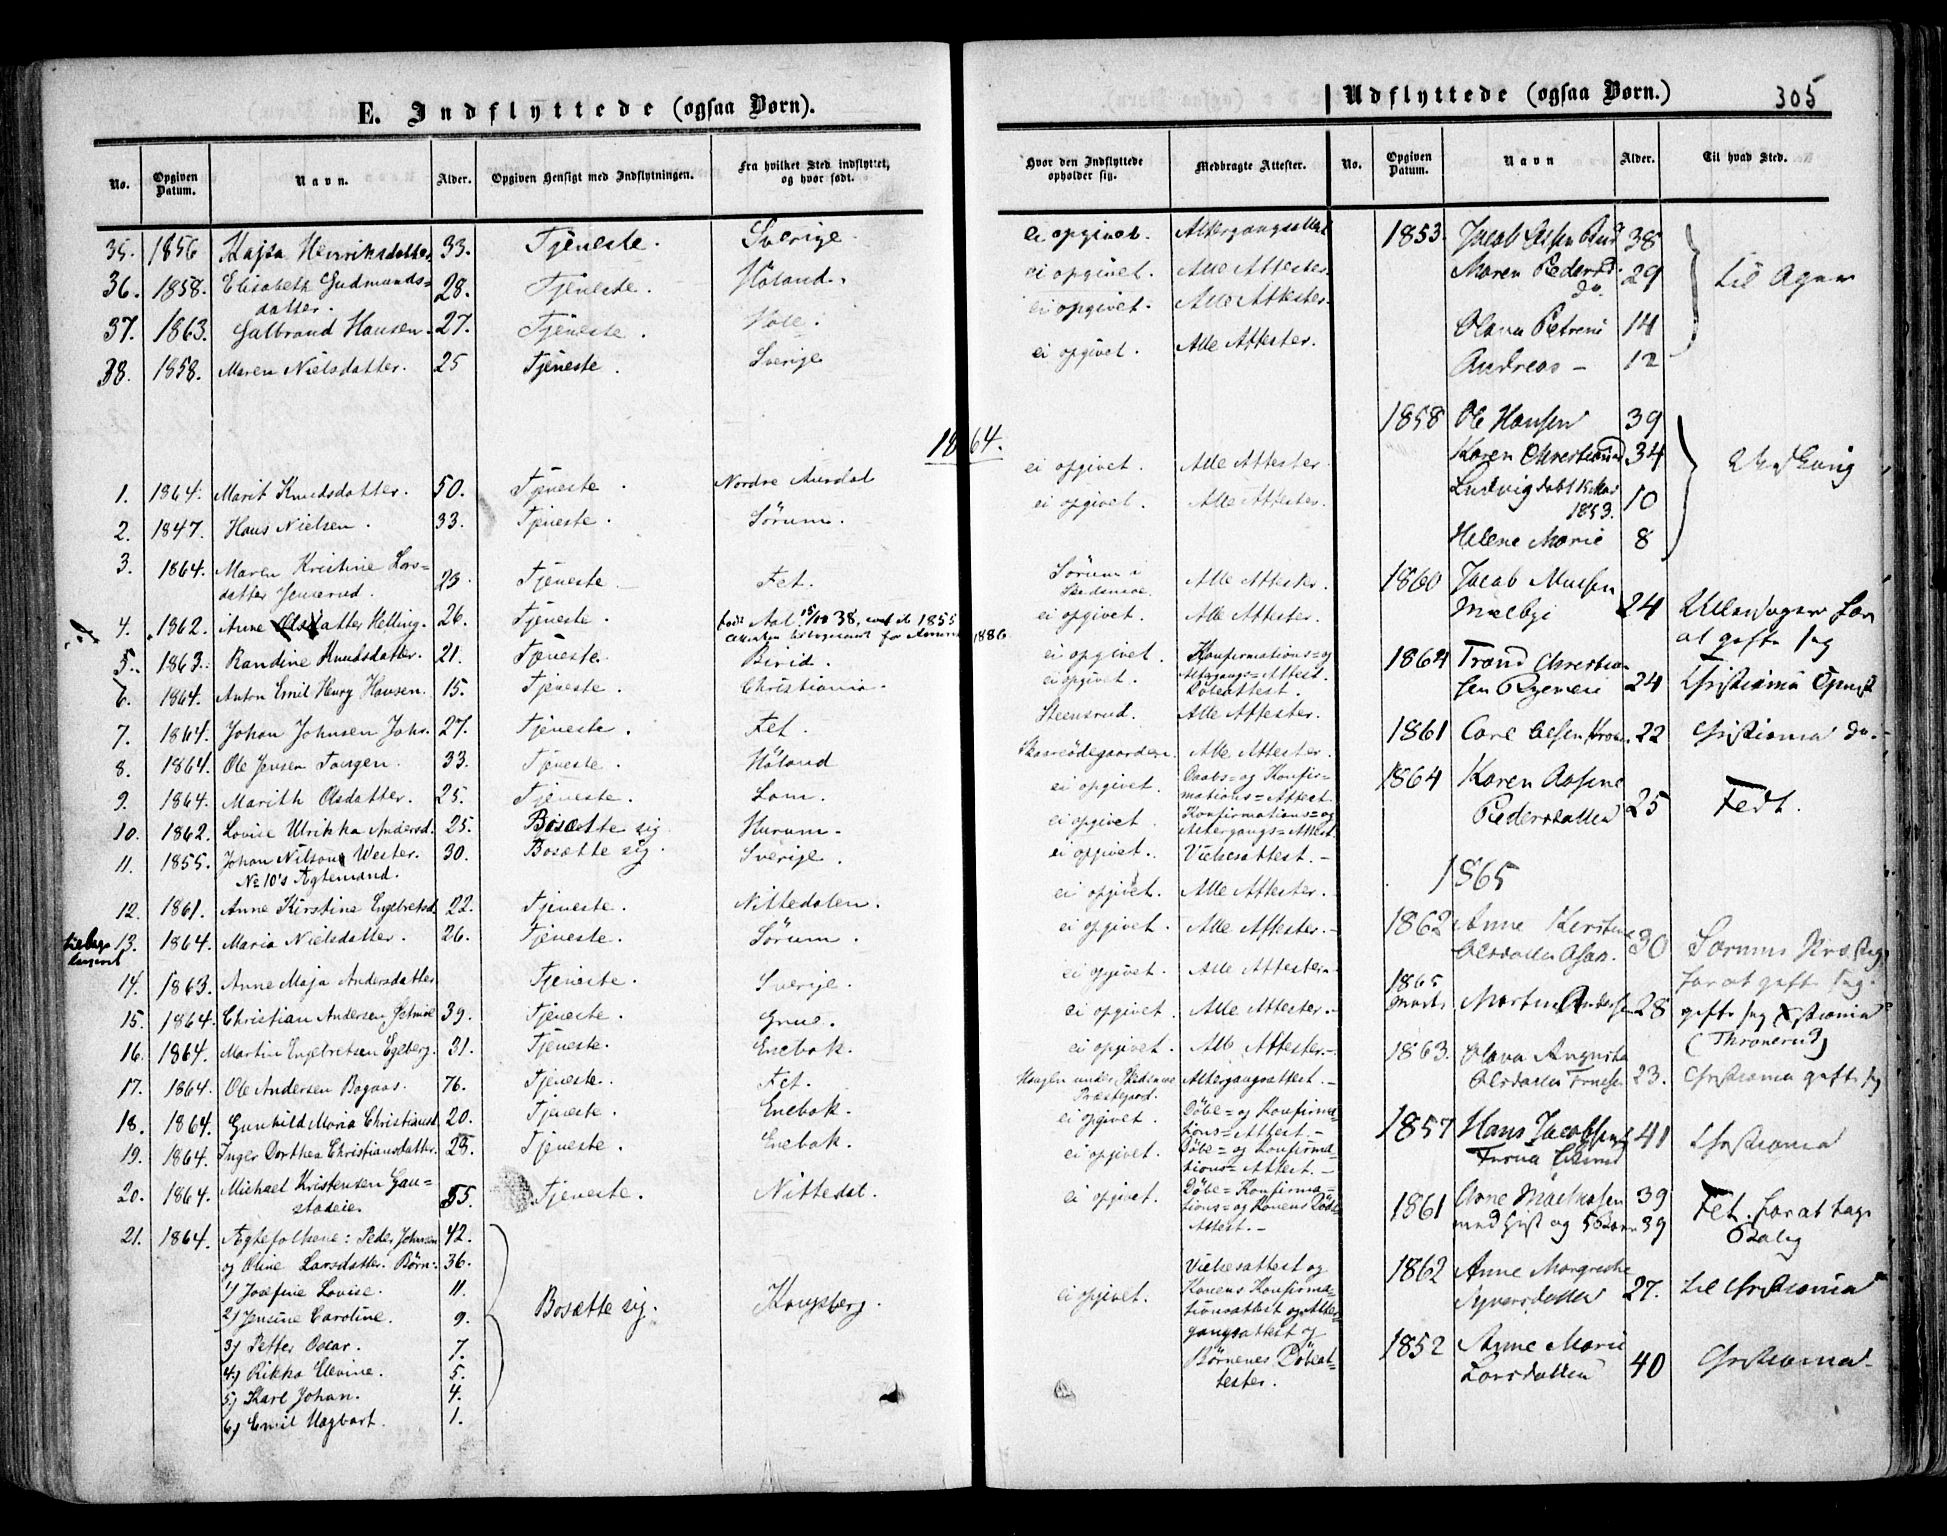 E. Indflyttede (ogsaa Børn).
No. Opgiven Datum. Navn. Alder. Opgiven Hensigt med Indflytningen. Fra hvilket Sted indflyttet, og hvor født.
Hvor den Indflyttede opholder sig. Medbragte Attester.
35. 1856 Kajsa Henriksdatter 33. Tjeneste. Sverige. ei opgivet. Altergangsattest
36. 1858. Elisabeth Gudmunds=
datter. 28. Tjeneste. Höland. ei opgivet. Alle Attester.
37. 1863. Gulbrand Hansen. 27. Tjeneste. Hole. ei opgivet. Alle Attester.
38. 1858. Maren Nielsdatter. 25 Tjeneste. Sverige ei opgivet. Alle Attester.
1864.
1. 1864. Marit Knudsdatter. 50. Tjeneste. Nordre Aurdal ei opgivet. Alle Attester.
2. 1847. Hans Nielsen. 33. Tjeneste. Sörum. ei opgivet. Alle Attester.
3. 1864. Maren Kristine Lars=
datter 23. Tjeneste. Fet. Sörum i
Skedsmoe. Alle Attester.
4. 1862. Anne Olsdatter Helling. 26. Tjeneste. født Aal 15/10 38, ei opgivet. Alle Attester.
1886
5. 1863. Randine Knudsdatter. 21. Tjeneste. Birid. ei opgivet. Konfirmations= og
Altergangs=Attest.
6. 1864. Anton Emil Henry Hansen. 15. Tjeneste. Christiania. ei opgivet. Döbeattest.
7. 1864. Johan Johnsen 27. Tjeneste. Fet. Steensrud. Alle Attester.
8. 1864. Ole Jensen Tangen. 33. Tjeneste. Höland Skareödegaarden. Alle Attester.
9. 1864. Marith Olsdatter. 25. Tjeneste. Lom. ei opgivet. Daabs= og Konfir=
mations=Attest.
10. 1862. Lovise Ulrikka Andersd. 25. Bosætte sig. Hurum. ei opgivet. Konfirmations= og
Altergangs=Attest.
11. 1855. Johan Nilson Wester. 30. Bosætte sig. Sverige. ei opgivet. Vielsesattest.
No 10's Ægtemand.
12. 1861. Anne Kirstine Engebretsd. 22. Tjeneste. Nittedalen. ei opgivet. Alle Attester.
13. 1864. Maria Nielsdatter. 26. Tjeneste. Sörum. ei opgivet. Alle Attester.
14. 1863. Anne Maja Andersdatter Tjeneste. Sverige. ei opgivet. Alle Attester.
15. 1864. Christian Andersen 39. Tjeneste. Grue. ei opgivet. Alle Attester.
16. 1864. Martin Engebretsen Egeberg. 31. Tjeneste. Enebak. ei opgivet. Alle Attester.
17. 1864. Ole Andersen Bogaas. 76. Tjeneste. Fet. Haugen under Skedsmoe
Præstegaard. Altergangsattest.
18. 1864. Gunhild Maria Christiansd. 20. Tjeneste. Enebak. ei opgivet. Döbe= og Konfirma=
tions=Attest.
19. 1864. Inger Dorthea Christiansdatter. 23. Tjeneste. Enebak. ei opgivet. Döbe= og Konfirma=
tions=Attest.
20. 1864. Michael Kristensen Gau=
stadeie. 55. Tjeneste. Nittedal. ei opgivet. Döbe= Konfirma=
tions= og Konens Döbe
Attest.
21. 1864. Ægtefolkene: Peder Johnsen 42.
og Oline Larsdatter. Børn: 36.
1) Josefine Lovise. 11.
2) Jensine Caroline. 9.
3) Petter Oscar. 7.
4) Rikka Elevine. 5.
5) Karl Johan. 4.
6) Emil Hagbart. 1.
Bosætte sig. Kongsberg. ei opgivet.
Vielsesattest og
Konens Konfirma=
tionsattest og Alter=
gangsattest og
Børnenes Döbeat=
tester.
Udflyttede (ogsaa Børn.) 305
No. Opgiven Datum. Navn Alder. Til hvad Sted.
1853. Jacob 38
Maren Pedersd. 29
do.
Olava Petrine 14
Andreas 12
til Ager
1858 Ole Hansen 39
Karen 34
Ludvig døbt 15 Mai
1853. 10
Helene Marie 8
1860 Jacob
24 Ullensager for
at gifte sig
1864 Trond Christian
sen 24 Christiania
1861 Carl Olsen 22 Christiania do.
1864 Karen
Pedersdatter 25 Fedt.
1865
1862 Anne Kirstine
Olsdatter 30 Sørums Præsteg
for at gifte sig.
1865
Marts Martin Andersen 28 gifte sig Xstiania
(Thronerud)
1863. Olava Augusta
Olsdatter 23. Christiania gifte sig
1857 Hans Jacobsen 41 Christiania
1861 Arne 39
med Gift og 5 Børn 39 Fet for at tage
Bolig
1862 Anne Margrethe
Syversdatter 27. til Christiania
1852 Anne Marie
Larsdatter 40 Christiania